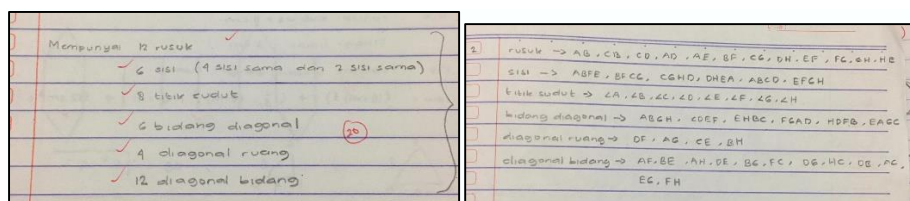 Mempunyai 12 rusuk
6 sisi (4 sisi sama dan 2 sisi sama)
8 titik sudut
6 bidang diagonal
20
4 diagonal ruang
12 diagonal bidang
2 rusuk → AB, CB, CD, AD, AE, BF, CG, DH, EF, FG, GH, HE
sisi → ABFE, BFCG, CGHD, DHEA, ABCD, EFGH
titik sudut → ∠A, ∠B, ∠C, ∠D, ∠E, ∠F, ∠G, ∠H
bidang diagonal → ABGH, CDEF, EHBC, FGAD, HDFB, EAGC
diagonal ruang → DF, AG, CE, BH
diagonal bidang → AF, BE, AH, DE, BG, FC, DG, HC, DB, AC,
EG, FH